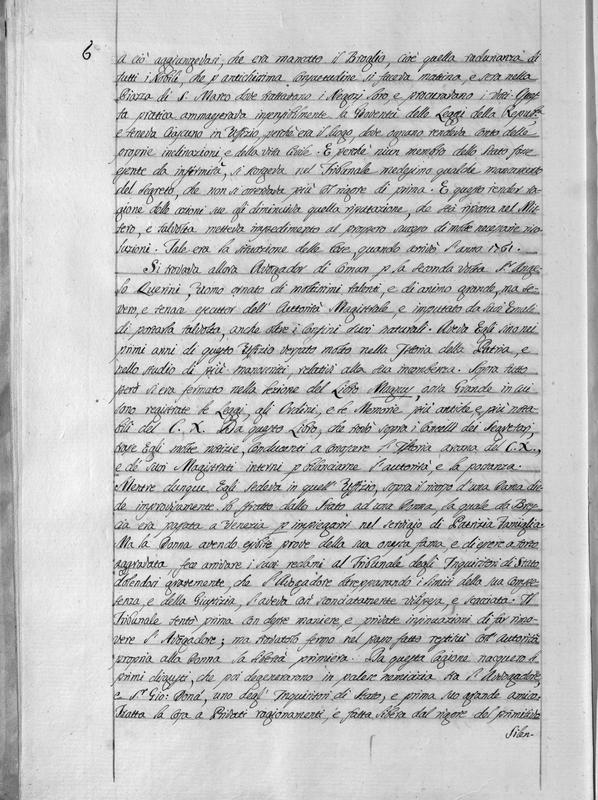 6
A ciò aggiungevasi, che era mancato il Broglio, cioè quella radunanza di
tutti i Nobili, che p antichissima consuetudine si faceva mattina, e sera nella
Piazza di S. Marco dove trattavano i Negozj loro, e procuravano i Voti. Ques-
ta pratica ammaestrava insensibilmente la Gioventù delle Leggi della Repub.ca
e teneva ciascuno in Uffizio, perchè era il luogo, dove ognuno rendeva conto delle
proprie inclinazioni, e della vita Civile. E perchè niun membro dello Stato fosse
esente da infermità, si scorgeva nel Tribunale medesimo qualche mancamento
del segreto, che non si osservava più col rigore di prima. E questo render ra-
gione delle azioni sue gli diminuiva quella riputazione, che sta riposta nel Mis-
tero, e talvolta metteva impedimento al prospero successo di molte necessarie riso-
luzioni. Tale era la situazione delle cose, quando arrivò l'anno 1761.
Si trovava allora Avogador di Comun p la seconda volta S.r Ange-
lo Querini, Uomo ornato di moltissimi talenti, e di animo grande, ma se-
vero, e tenace esecutor dell'Autorità Magistrale, e imputato da suoi Emuli
di portarla talvolta, anche oltre i confini suoi naturali. Aveva Egli sin nei
primi anni di questo Uffizio versato molto nella Istoria della Patria, e
nello studio di più manoscritti relativi alla sua incombenza. Sopra tutto
però si era fermato nella lezione del Libro Magnus, ossia Grande in cui
sono registrate le Leggi, gli Ordini, e le Memorie più antiche, e più nota-
bili del C. X. Da questo Libro, che trovò sopra i Cancelli dei Segretarj,
trasse Egli molte notizie, conducenti a conoscere l'Istoria arcana del C. X.,
e de' suoi Magistrati interni, p bilanciarne l'autorità, e la potenza.
Mentre dunque Egli sedeva in quell'Uffizio, sopra il ricorso d'una Dama die-
de improvvisamente lo sfratto dallo Stato ad una Donna, la quale da Bres-
cia era passata a Venezia p impiegarsi nel servigio di Patrizia Famiglia.
Ma la Donna avendo esibite prove della sua onesta fama, e di essere a torto
aggravata, fece arrivare i suoi reclami al Tribunale degli Inquisitori di Stato,
dolendosi gravemente, che l'Avogadore oltrepassando i limiti della sua Compe-
tenza, e della Giustizia, l'aveva così sconciatamente vilipesa, e scacciata. Il
Tribunale tentò prima con destre maniere, e private insinuazioni di far rimo-
vere l'Avogadore; ma trovatolo fermo nel passo fatto restituì con autorità
propria alla Donna la libertà primiera. Da questa Cagione nacquero i
primi disgusti, che poi degenerarono in palese nemicizia tra l'Avogadore,
e S.r Gio: Donà, uno degl'Inquisitori di Stato, e prima suo grande amico.
Tratta la Cosa a Privati ragionamenti, e fatta libera dal rigore del primitivo
Silen-